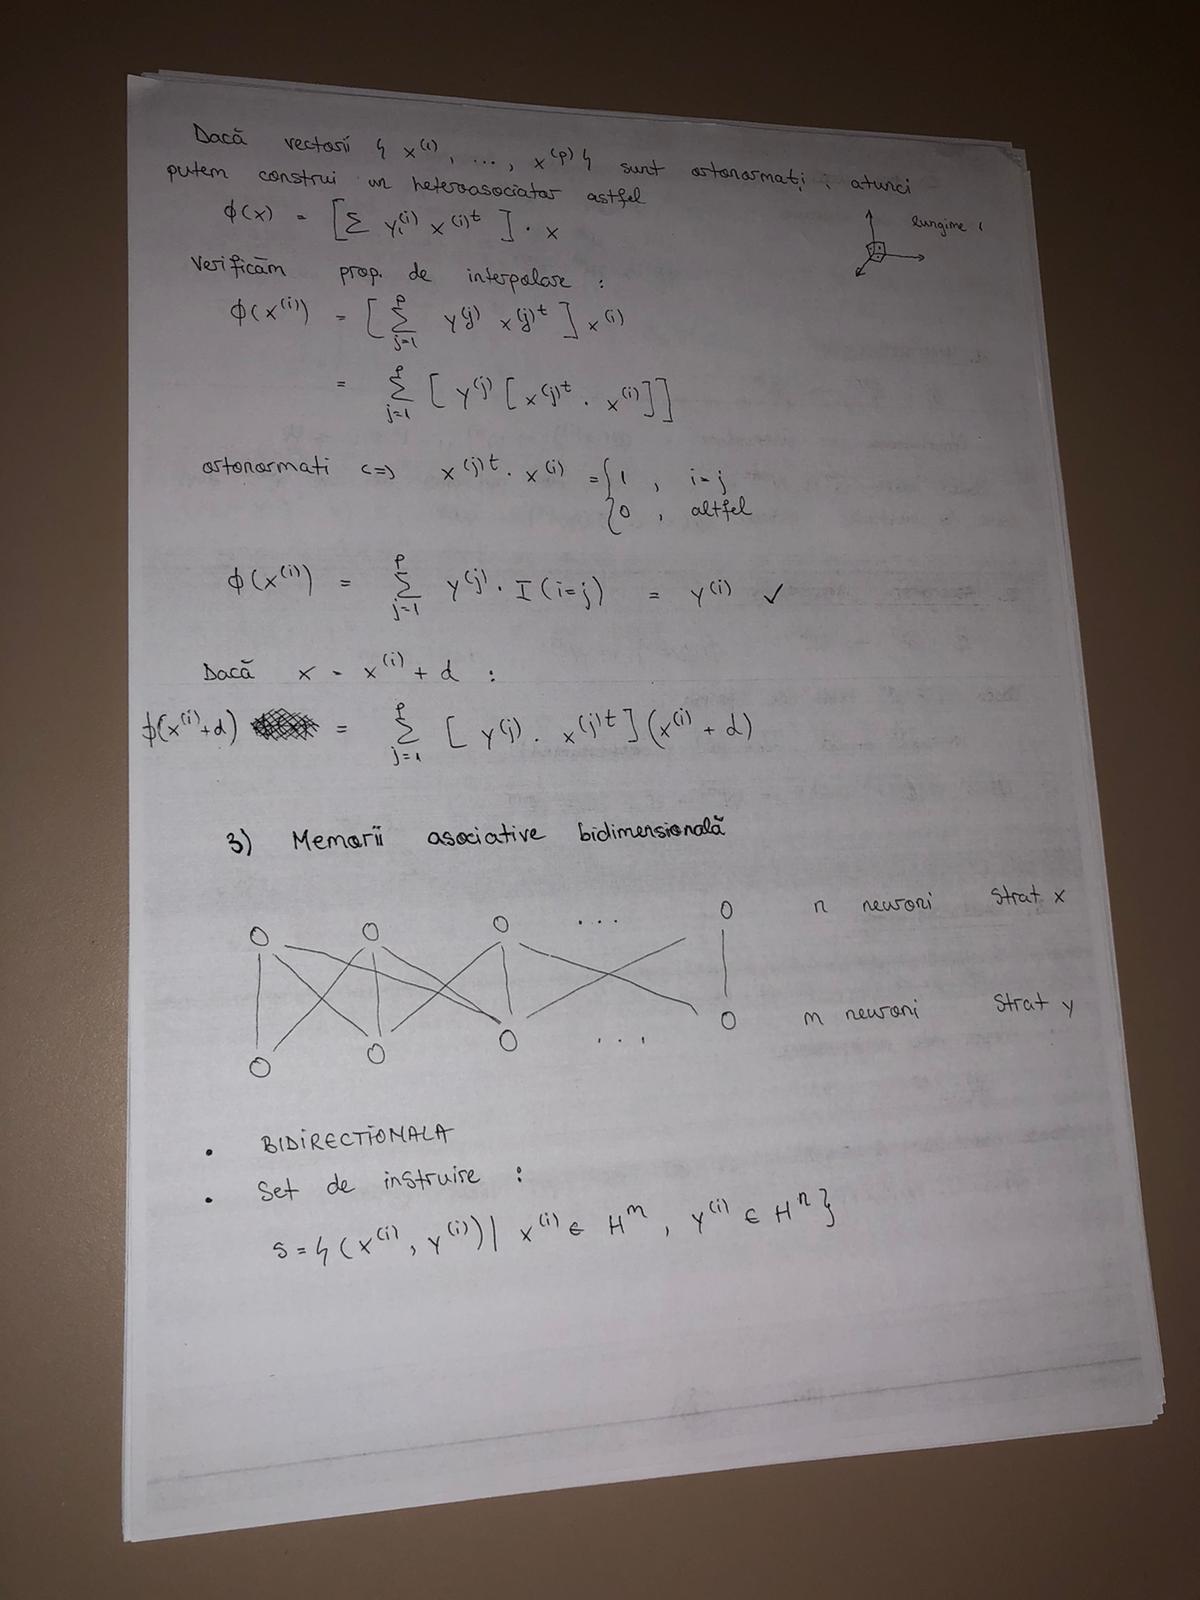 Dacă vectorii { x⁽¹⁾, ..., x⁽ᵖ⁾ } sunt ortonormați, atunci
putem construi un heteroasociator astfel
ϕ(x) = [Σ yᵢ⁽ⁱ⁾ x⁽ⁱ⁾ᵗ] · x
lungime 1
Verificăm prop. de interpolare :
ϕ(x⁽ⁱ⁾) = [Σ_{j=1}^{p} y⁽ʲ⁾ x⁽ʲ⁾ᵗ] x⁽ⁱ⁾
= Σ_{j=1}^{p} [y⁽ʲ⁾ [x⁽ʲ⁾ᵗ · x⁽ⁱ⁾]]
ortonormati <=> x⁽ʲ⁾ᵗ · x⁽ⁱ⁾ = { 1 , i=j
{ 0 , altfel
ϕ(x⁽ⁱ⁾) = Σ_{j=1}^{p} y⁽ʲ⁾ · I(i=j) = y⁽ⁱ⁾ ✓
Dacă x = x⁽ⁱ⁾ + d :
ϕ(x⁽ⁱ⁾+d) = Σ_{j=1}^{p} [y⁽ʲ⁾ · x⁽ʲ⁾ᵗ] (x⁽ⁱ⁾ + d)
3) Memorii asociative bidimensională
... n neuroni Strat x
... m neuroni Strat y
• BIDIRECTIONALA
• Set de instruire :
S = { (x⁽ⁱ⁾, y⁽ⁱ⁾) | x⁽ⁱ⁾ ∈ Hᵐ, y⁽ⁱ⁾ ∈ Hⁿ }